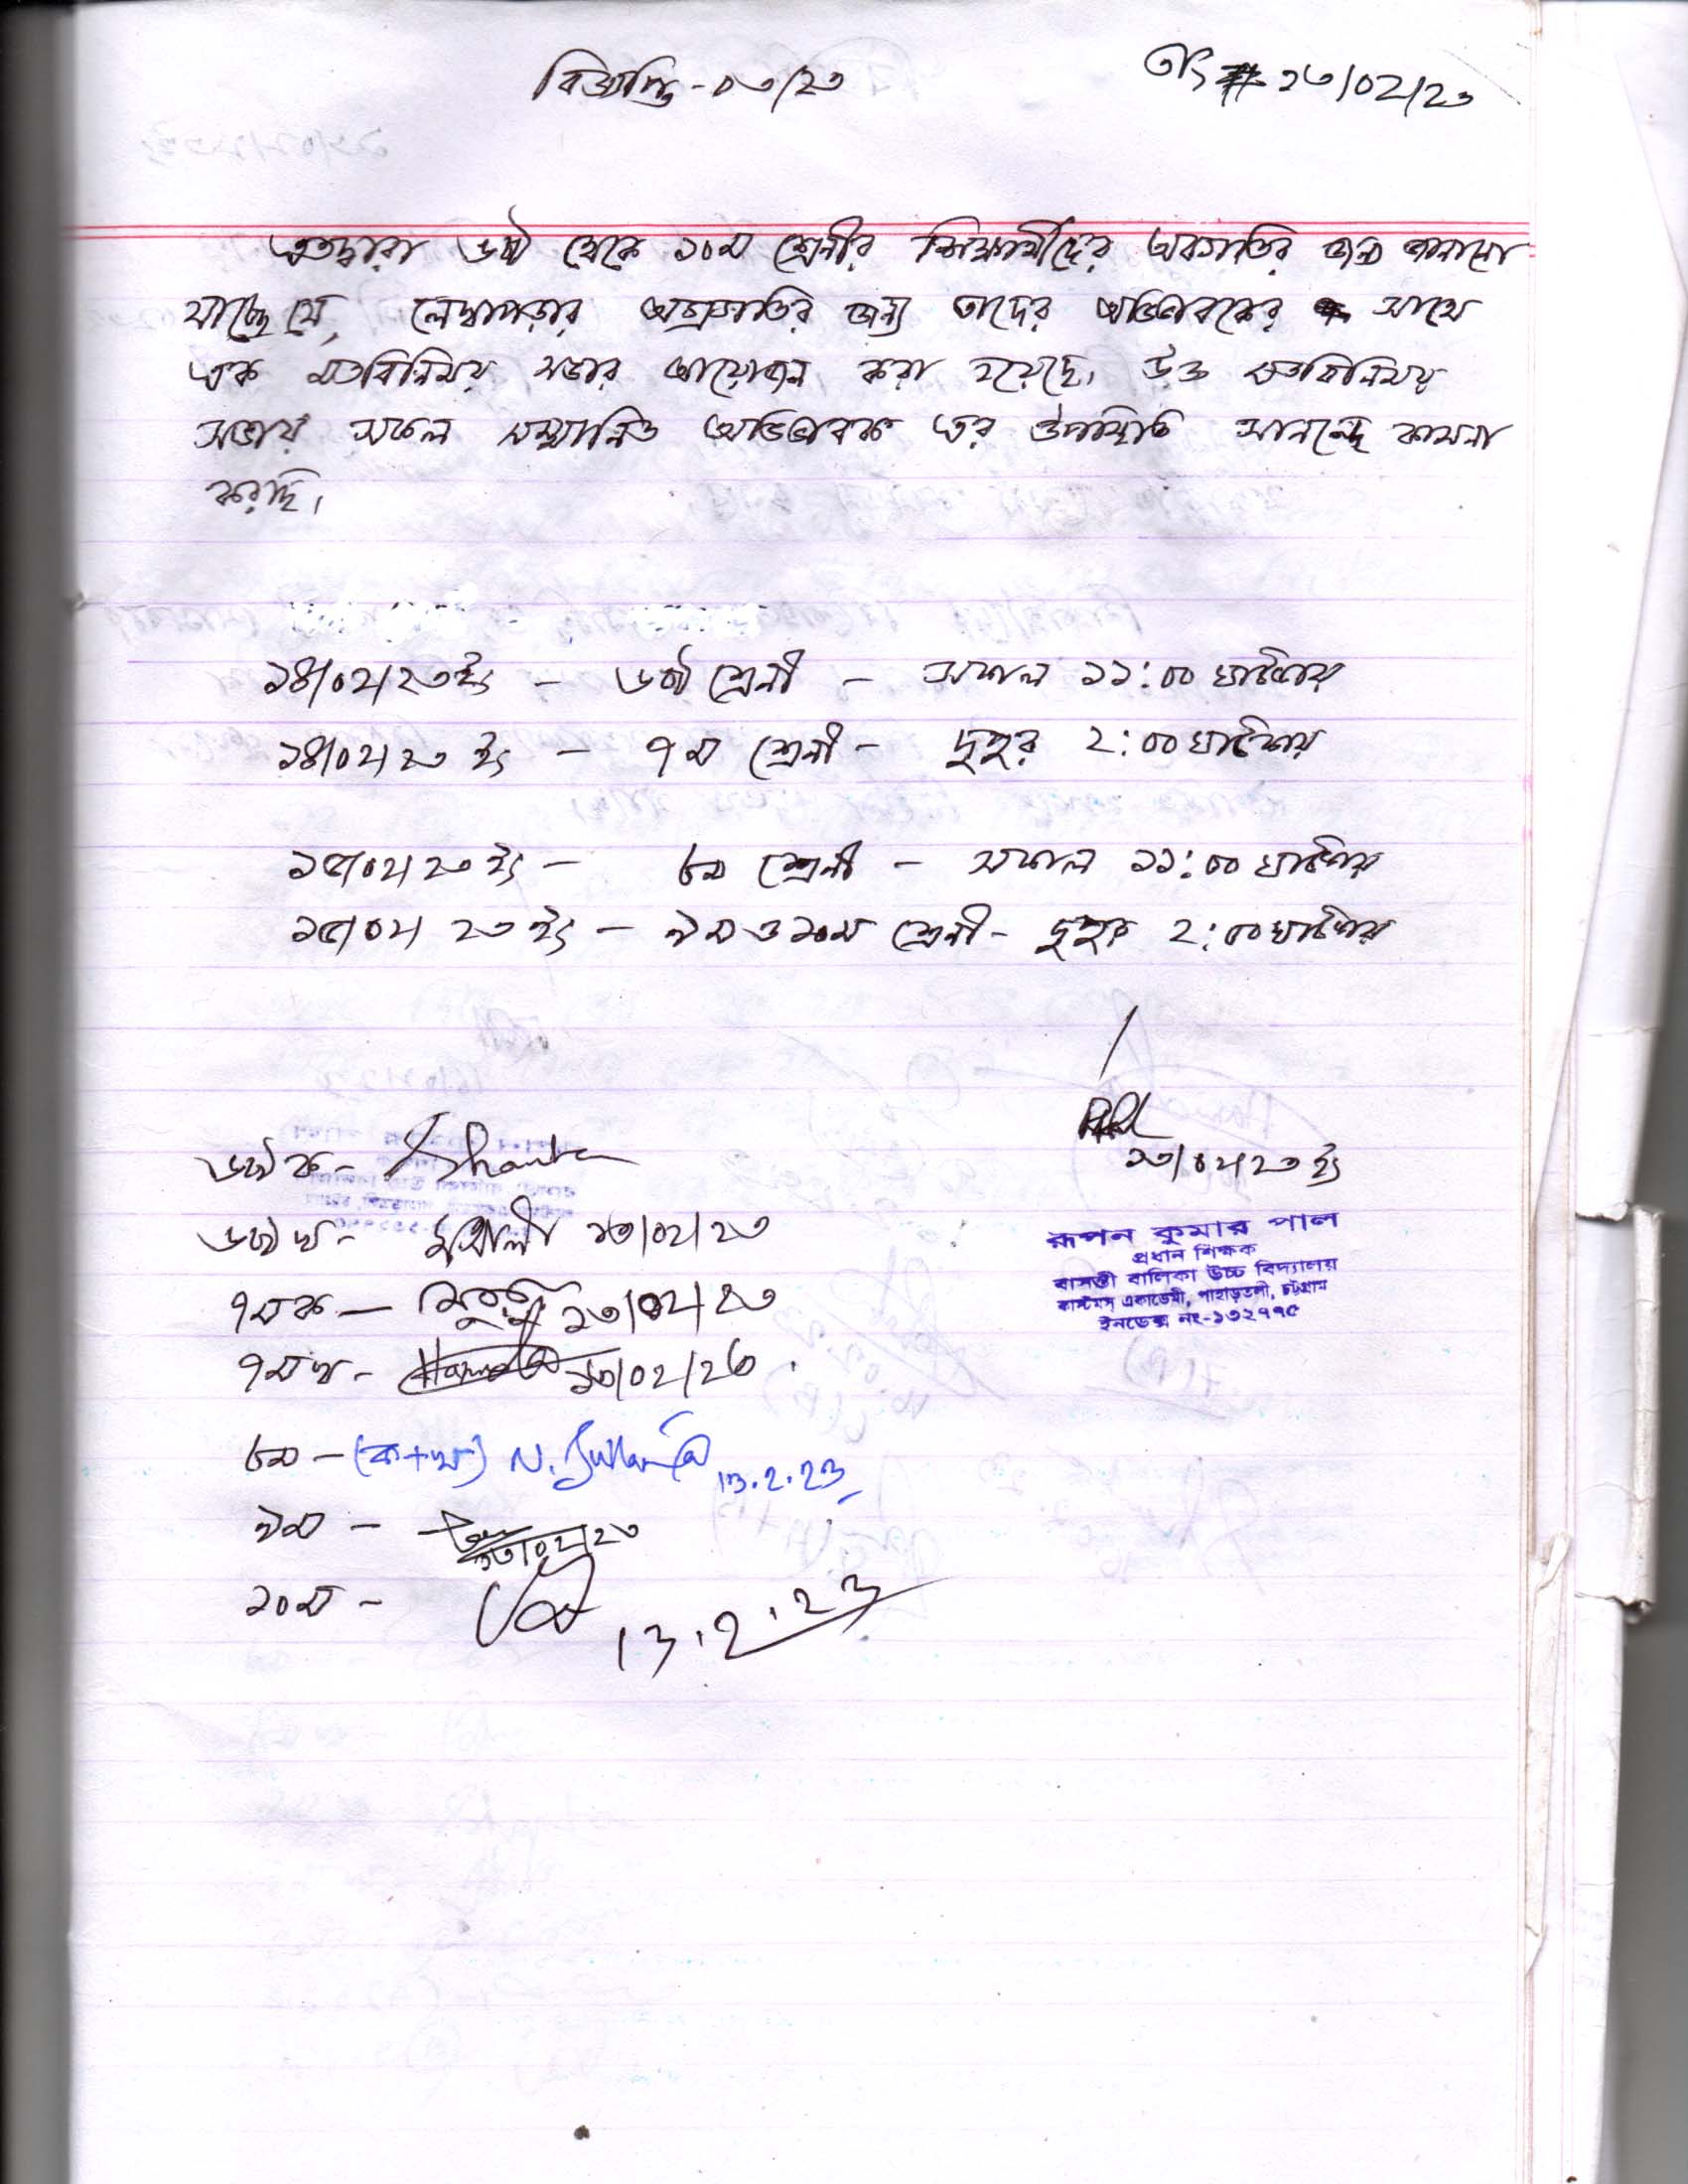 বিজ্ঞপ্তি-০৩/২৩
তাং ১৩/০২/২৩
এতদ্বারা ৬ষ্ঠ থেকে ১০ম শ্রেনীর শিক্ষার্থীদের অবগতির জন্য জানানো
যাচ্ছে যে, লেখাপড়ার অগ্রগতির জন্য তাদের অভিভাবকের সাথে
এক মতবিনিময় সভার আয়োজন করা হয়েছে। উক্ত মতবিনিময়
সভায় সকল সম্মানিত অভিভাবক এর উপস্থিতি আনন্দে কামনা
করছি।
১৪/০২/২৩ইং - ৬ষ্ঠ শ্রেনী - সকাল ১১:০০ ঘটিকায়
১৪/০২/২৩ ইং - ৭ম শ্রেনী - দুপুর ২:০০ ঘটিকায়
১৫/০২/২৩ ইং - ৮ম শ্রেনী - সকাল ১১:০০ ঘটিকায়
১৫/০২/২৩ ইং - ৯ম ও ১০ম শ্রেনী - দুপুর ২:০০ ঘটিকায়
১৩/০২/২৩ ইং
রূপন কুমার পাল
প্রধান শিক্ষক
বাসন্তী বালিকা উচ্চ বিদ্যালয়
কাস্টমস্ একাডেমী, পাহাড়তলী, চট্টগ্রাম
ইনডেক্স নং-১৩২৭৭৫
৬ষ্ঠ ক -
৬ষ্ঠ খ - ১৩/০২/২৩
৭ম ক - ১৩/০২/২৩
৭ম খ - ১৩/০২/২৩
৮ম - (ক+খ) N. 13.2.23
৯ম - ১৩/০২/২৩
১০ম - 13.2.23